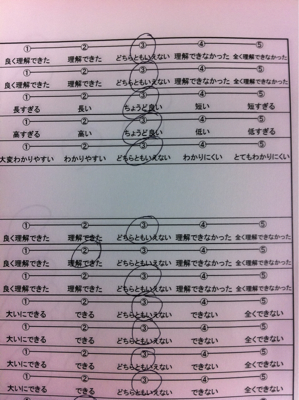 ① ② ③ ④ ⑤
良く理解できた 理解できた どちらともいえない 理解できなかった 全く理解できなかった
① ② ③ ④ ⑤
良く理解できた 理解できた どちらともいえない 理解できなかった 全く理解できなかった
① ② ③ ④ ⑤
長すぎる 長い ちょうど良い 短い 短すぎる
① ② ③ ④ ⑤
高すぎる 高い ちょうど良い 低い 低すぎる
① ② ③ ④ ⑤
大変わかりやすい わかりやすい どちらともいえない わかりにくい とてもわかりにくい
① ② ③ ④ ⑤
良く理解できた 理解できた どちらともいえない 理解できなかった 全く理解できなかった
① ② ③ ④ ⑤
良く理解できた 理解できた どちらともいえない 理解できなかった 全く理解できなかった
① ② ③ ④ ⑤
良く理解できた 理解できた どちらともいえない 理解できなかった 全く理解できなかった
① ② ③ ④ ⑤
大いにできる できる どちらともいえない できない 全くできない
① ② ③ ④ ⑤
大いにできる できる どちらともいえない できない 全くできない
① ② ③ ④ ⑤
大いにできる できる どちらともいえない できない 全くできない
① ② ③ ④ ⑤
大いにできる できる どちらともいえない できない 全くできない